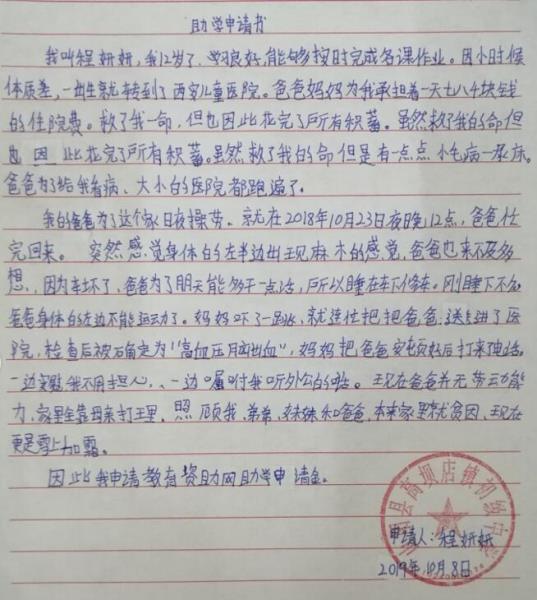 助学申请书
我叫程妍妍,我12岁了,学习良好,能够按时完成各课作业。因小时候
体质差,一出生就转到了西安儿童医院。爸爸妈妈为我承担着一天七八千块钱
的住院费。救了我一命,但也因此花完了所有积蓄。虽然救了我的命但
也因此花完了所有积蓄。虽然救了我的命但是有一点点小毛病一
爸爸为了给我看病、大小的医院都跑遍了。
我的爸爸为了这个家日夜操劳。就在2018年10月23日夜晚12点,爸爸忙
完回来。突然感觉身体的左半边出现麻木的感觉,爸爸也来不及多
想,因为车坏了,爸爸为了明天能多干一点活,所以睡在车下修车。刚睡下不久
爸爸身体的左边不能运动了。妈妈吓了一跳,就连忙把把爸爸送进了医
院,检查后被确定为"高血压脑出血",妈妈把爸爸安顿好后打来电话。
一边安慰我不用担心、一边嘱咐我听外公的话。现在爸爸并无劳动能
力,家里全靠母亲打理,照顾我、弟弟、妹妹和爸爸,本来家里就贫困,现在
更是雪上加霜。
因此我申请教育资助网助学申请金。
县高坝店镇初级中学
申请人:程妍妍
2019年10月8日